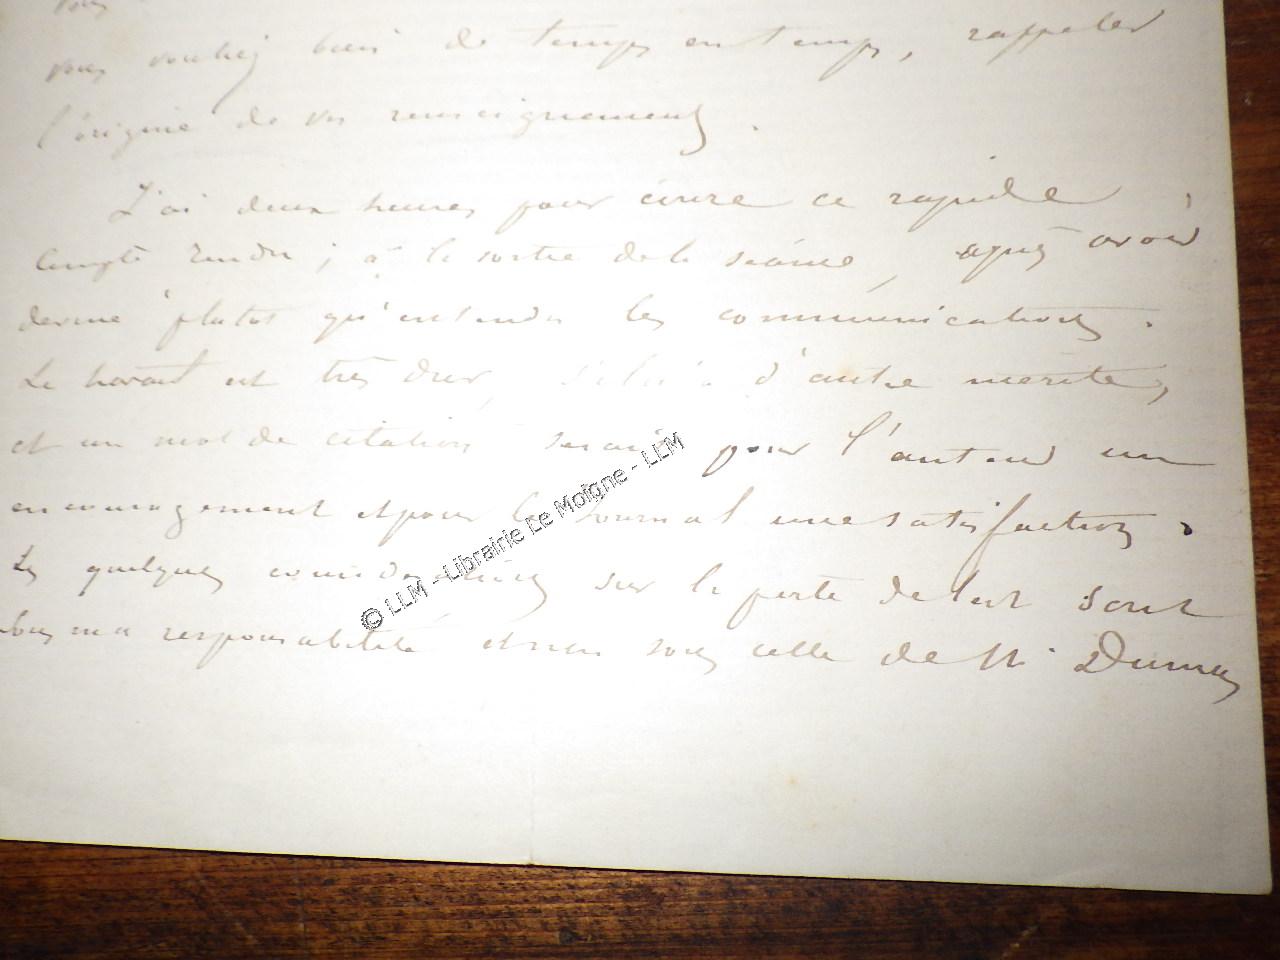 vous
vous vouliez bien de temps en temps, rappeler
l'origine de vos renseignements.
J'ai deux heures pour écrire ce rapide
compte rendu, à la sortie de la séance, après avoir
deviné plutôt qu'entendu les communications.
Le travail est très dur, s'il n'a d'autre mérite,
et un mot de citation serait pour l'auteur un
encouragement et pour le Journal une satisfaction.
Les quelques considérations sur la perte de lest sont
sous ma responsabilité et non sous celle de M. Dumas
© LLM - Librairie Le Moigne - LLM